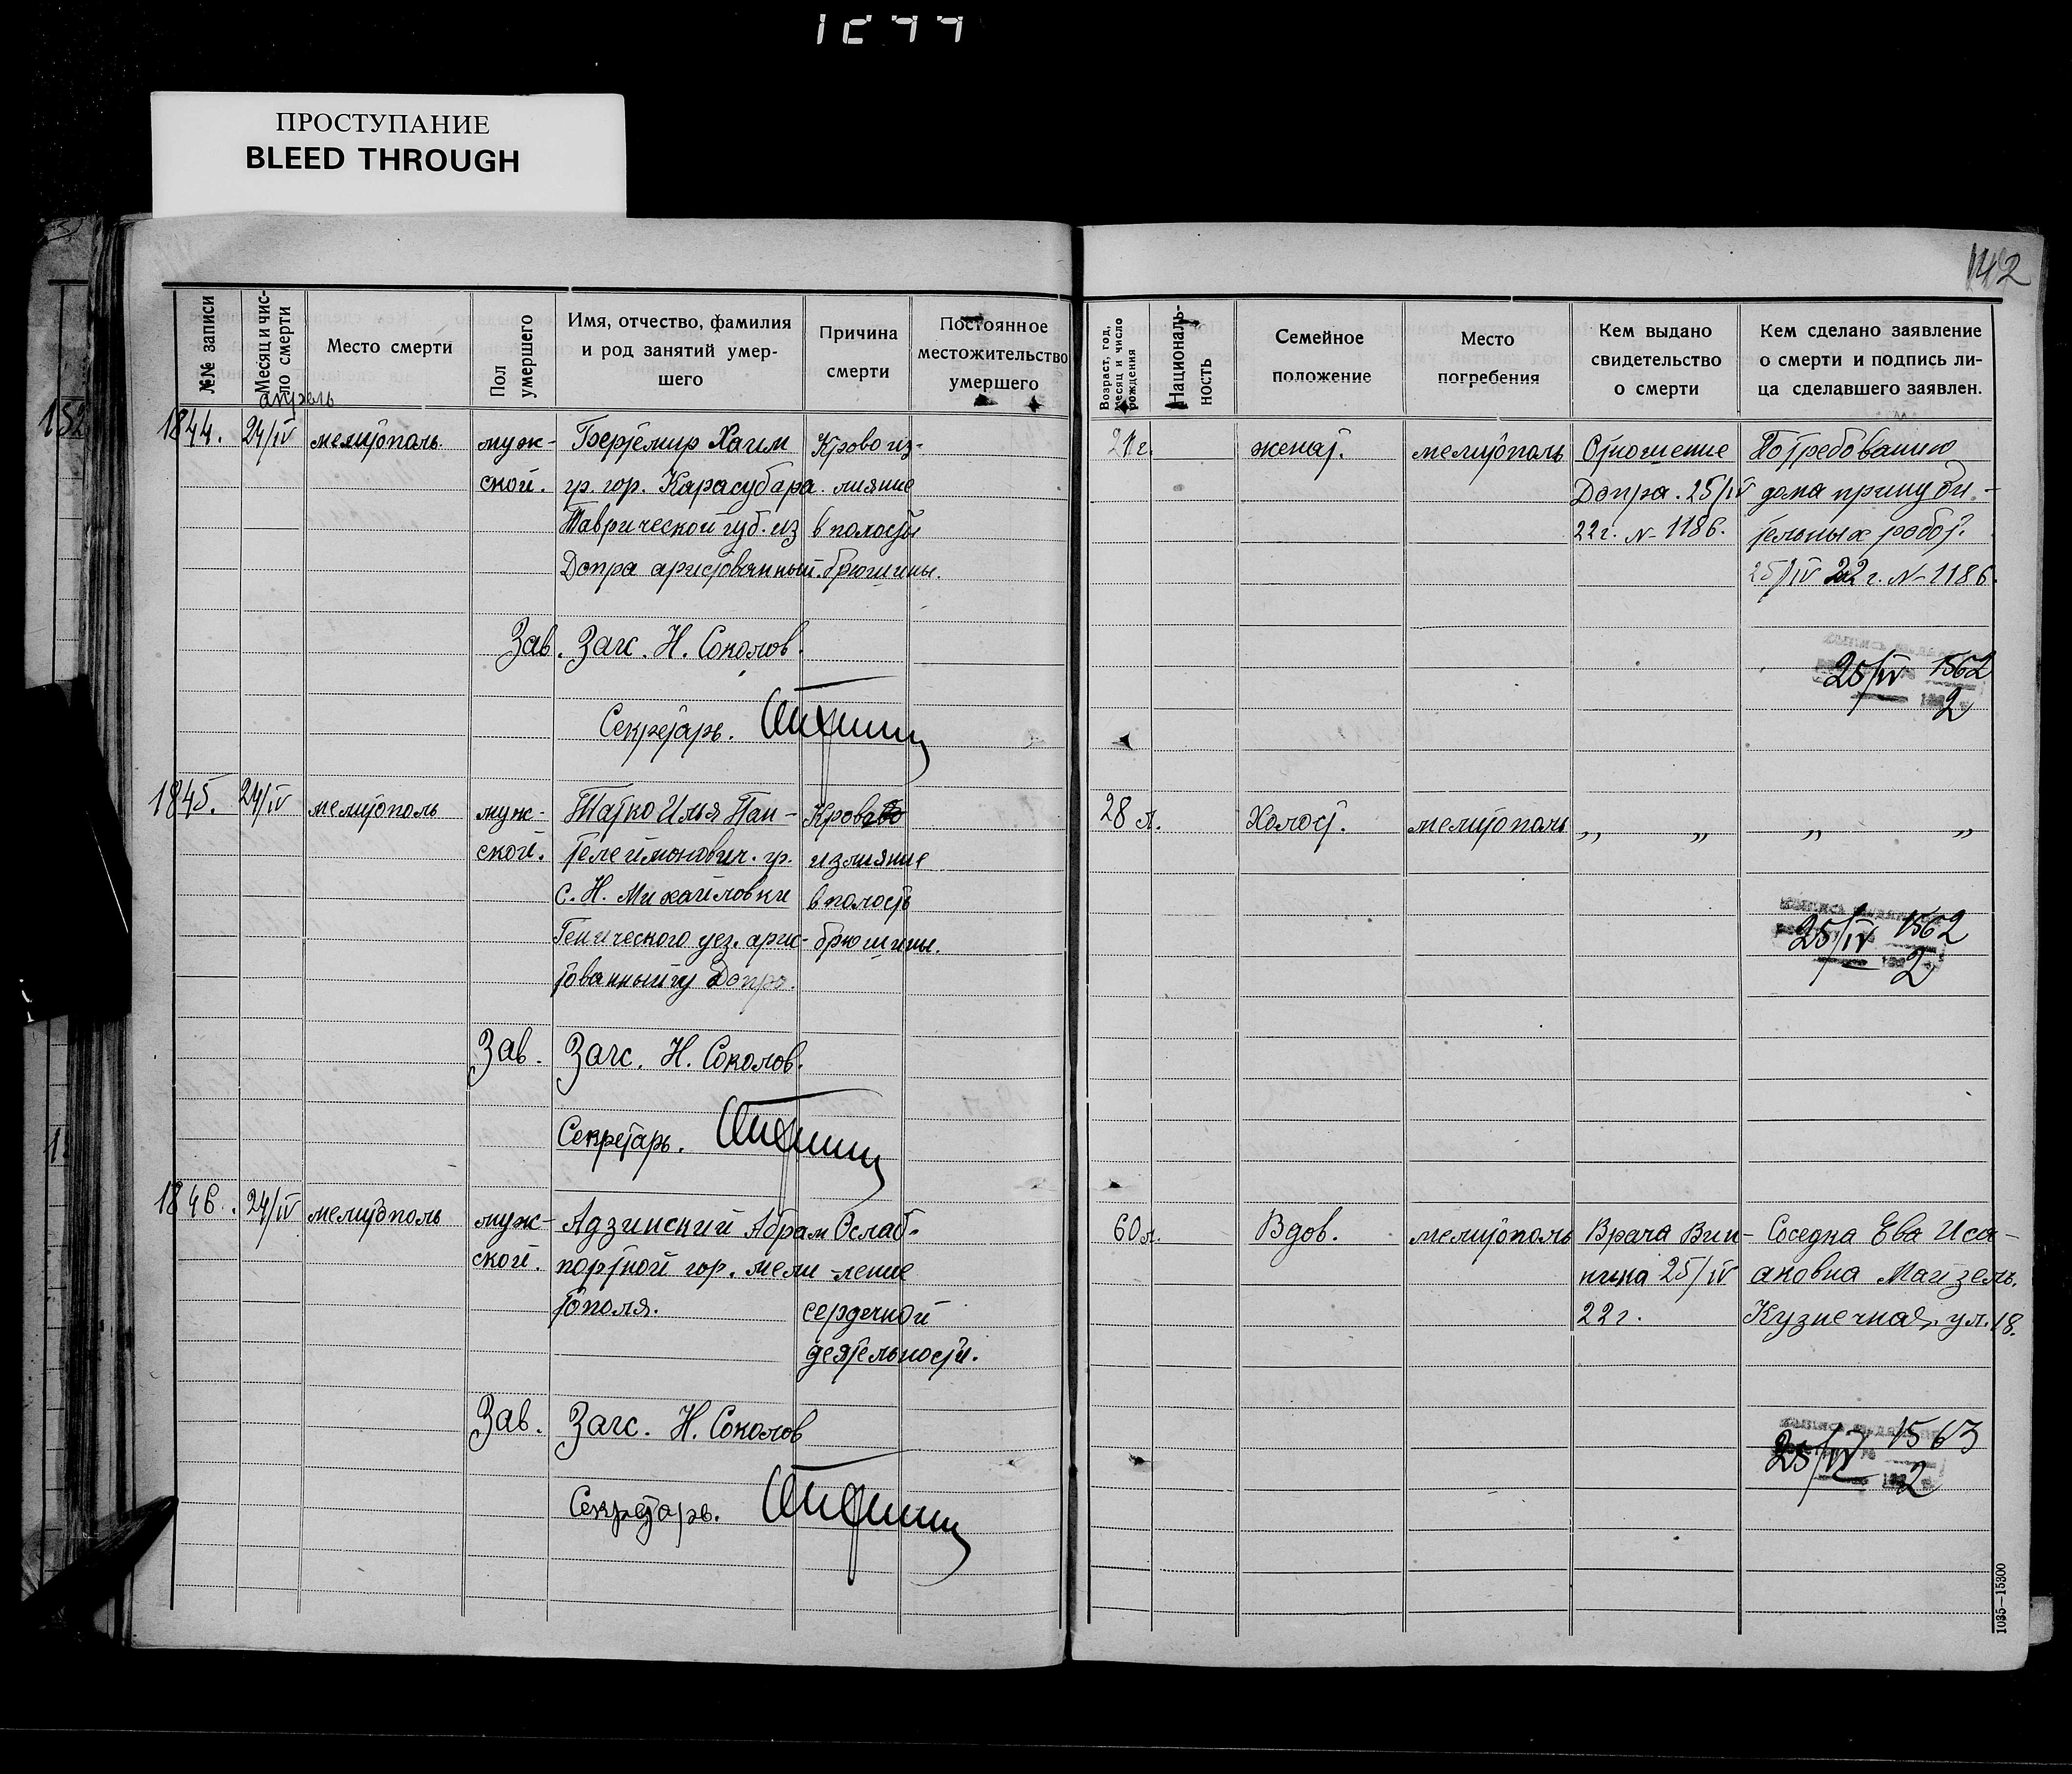 1299
ПРОСТУПАНИЕ
BLEED THROUGH
142
№№ записи
Месяц и чис-
ло смерти
Место смерти
Пол
умершего
Имя, отчество, фамилия
и род занятий умер-
шего
Причина
смерти
Постоянное
местожительство
умершего
Возраст, год,
месяц и число
рождения
Националь-
ность
Семейное
положение
Место
погребения
Кем выдано
свидетельство
о смерти
Кем сделано заявление
о смерти и подпись ли-
ца сделавшего заявлен.
апрель
152
1844.
24/IV
мелитополь.
муж-
ской.
Бертемир Хаим
гр. гор. Карасубара.
Таврической губ. из
Допра аристованный.
Кровоиз-
лияние
в полости
брюшины.
21г.
женат.
мелитополь
Отношение
Допра. 25/IV
22г. N-1186.
По требованию
дома принуди-
тельных работ.
25/IV 22г. N-1186.
Зав. Загс. Н. Соколов.
Секретарь.
25/IV 1562
2
1845.
24/IV
мелитополь
муж-
ской.
Татко Илья Пан-
телеймонович. гр.
с. Н. Михайловки
Генического уез. арис-
тованный у Допра.
Кроваво
излияние
в полость
брюшины.
28 л.
Холост.
мелитополь
„ „
„ „
25/IV 1562
2
Зав. Загс. Н. Соколов.
Секретарь.
1846.
24/IV
мелитополь
муж-
ской.
Адзинский Абрам
портной гор. мели
тополя.
Ослаб-
ление
сердечной
деятельности.
60л.
Вдов.
мелитополь
Врача Вин-
ника 25/IV
22г.
Соседка Ева Иса-
аковна Майзель.
Кузнечная, ул. 18.
Зав. Загс. Н. Соколов
25/IV 1563
2
Секретарь.
1035—15300